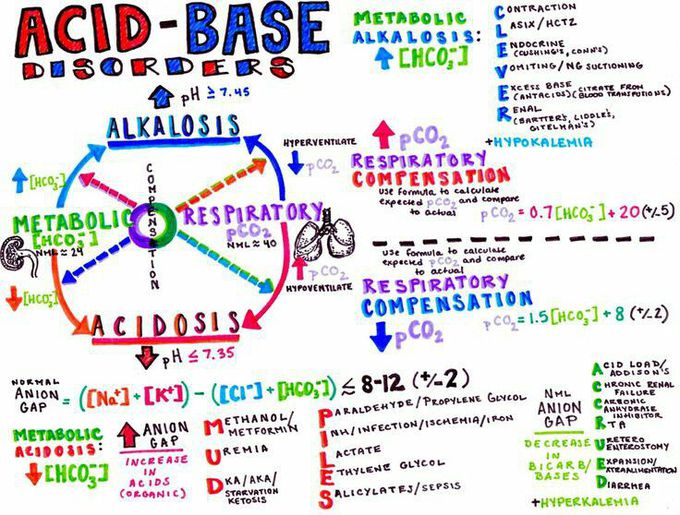 ACID-BASE
DISORDERS
pH ≥ 7.45
ALKALOSIS
HYPERVENTILATE
pCO₂
[HCO₃⁻]
COMPENSATION
METABOLIC
[HCO₃⁻]
NML ≈ 24
RESPIRATORY
pCO₂
NML ≈ 40
[HCO₃⁻]
pCO₂
HYPOVENTILATE
ACIDOSIS
pH ≤ 7.35
METABOLIC
ALKALOSIS:
[HCO₃⁻]
CONTRACTION
LASIX/HCTZ
ENDOCRINE
(CUSHING'S, CONN'S)
VOMITING/NG SUCTIONING
EXCESS BASE
(ANTACIDS)(CITRATE FROM
BLOOD TRANSFUTIONS)
RENAL
(BARTTER'S, LIDDLE'S,
GITELMAN'S)
+HYPOKALEMIA
pCO₂
RESPIRATORY
COMPENSATION
USE formula to calculate
expected pCO₂ and compare
to actual
pCO₂ = 0.7[HCO₃⁻] + 20 (+/-5)
USE formula to calculate
expected pCO₂ and compare
to actual
RESPIRATORY
COMPENSATION
pCO₂
pCO₂ = 1.5[HCO₃⁻] + 8 (+/-2)
NORMAL
ANION
GAP
= ([Na⁺]+[K⁺]) - ([Cl⁻]+[HCO₃⁻]) ≤ 8-12 (+/-2)
METABOLIC
ACIDOSIS:
[HCO₃⁻]
ANION
GAP
INCREASE
IN
ACIDS
(ORGANIC)
METHANOL/
METFORMIN
UREMIA
DKA/AKA/
STARVATION
KETOSIS
PARALDEHYDE/PROPYLENE GLYCOL
INH/INFECTION/ISCHEMIA/IRON
LACTATE
ETHYLENE GLYCOL
SALICYLATES/SEPSIS
NML
ANION
GAP
DECREASE
IN
BICARB/
BASES
ACID LOAD/
ADDISON'S
CHRONIC RENAL
FAILURE
CARBONIC
ANHYDRASE
INHIBITOR
RTA
URETERO
ENTEROSTOMY
EXPANSION/
DIARRHEA
+HYPERKALEMIA